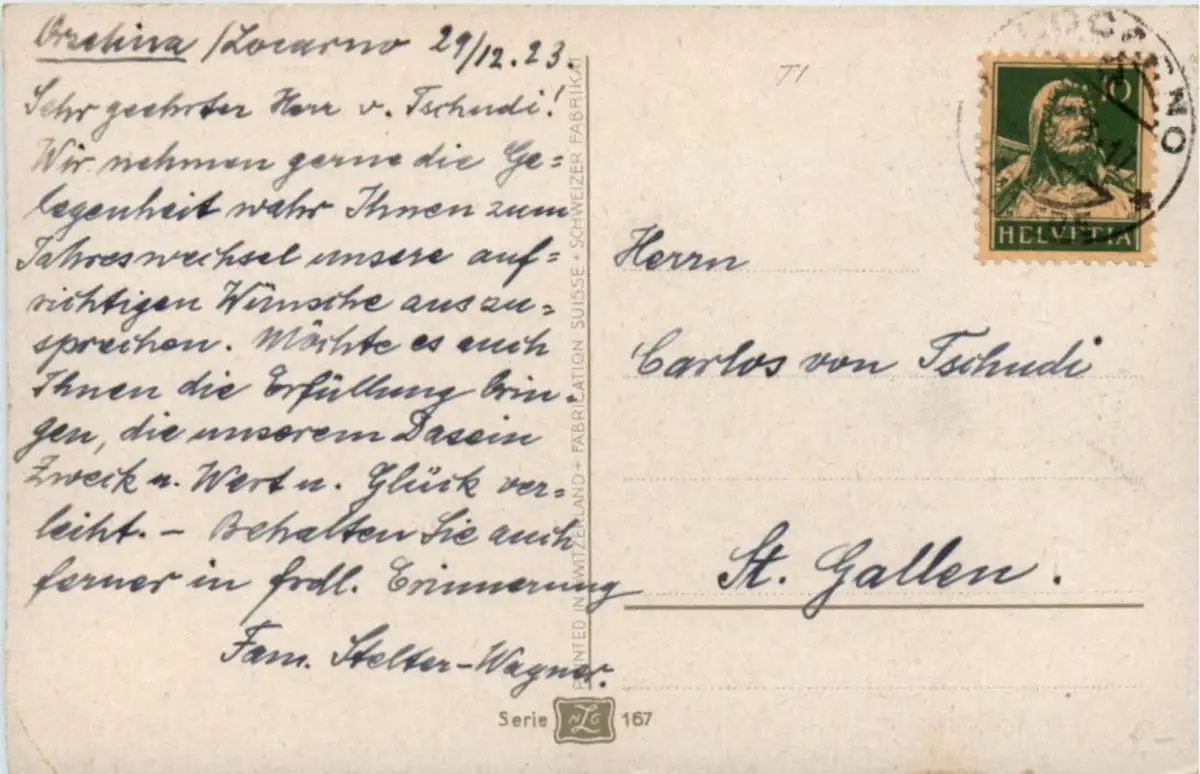 Orselina /Locarno 29/12.23.
Sehr geehrter Herr v. Tschudi!
Wir nehmen gerne die Ge=
legenheit wahr Ihnen zum
Jahreswechsel unsere auf=
richtigen Wünsche auszu=
sprechen. Möchte es auch
Ihnen die Erfüllung brin=
gen, die unserem Dasein
Zweck u. Wert u. Glück ver=
leiht. – Behalten Sie auch
ferner in frdl. Erinnerung
Fam. Stelter-Wagner.
PRINTED IN SWITZERLAND + FABRICATION SUISSE + SCHWEIZER FABRIKAT
Serie NZG 167
TI
10
HELVETIA
LOCARNO
Herrn
Carlos von Tschudi
St. Gallen.